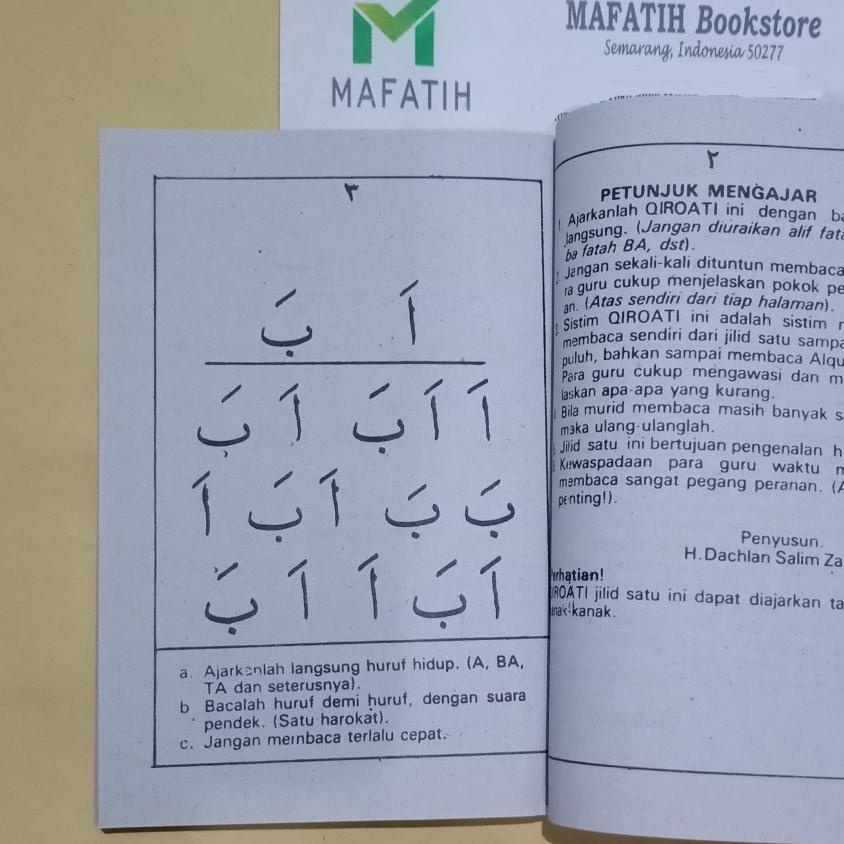 MAFATIH
MAFATIH Bookstore
Semarang, Indonesia 50277
٢
PETUNJUK MENGAJAR
1. Ajarkanlah QIROATI ini dengan
langsung. (Jangan diuraikan alif
ba fatah BA, dst).
2. Jangan sekali-kali dituntun membaca
ra guru cukup menjelaskan pokok
an. (Atas sendiri dari tiap halaman).
3. Sistim QIROATI ini adalah sistim
membaca sendiri dari jilid satu
puluh, bahkan sampai membaca
Para guru cukup mengawasi dan
laskan apa-apa yang kurang.
Bila murid membaca masih banyak
maka ulang-ulanglah.
Jilid satu ini bertujuan pengenalan
Kewaspadaan para guru waktu
membaca sangat pegang peranan.
penting!).
Penyusun.
H.Dachlan Salim
Perhatian!
QIROATI jilid satu ini dapat diajarkan
anak-kanak.
٣
اَ بَ
اَ اَ بَ اَ بَ
بَ بَ اَ بَ اَ
اَ بَ اَ اَ بَ
a. Ajarkanlah langsung huruf hidup. (A, BA,
TA dan seterusnya).
b Bacalah huruf demi huruf, dengan suara
pendek. (Satu harokat).
c. Jangan membaca terlalu cepat.